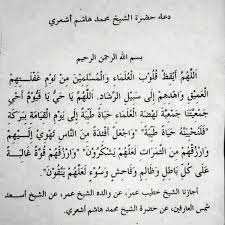 دعاء حضرة الشيخ محمد هاشم أشعري
بسم الله الرحمن الرحيم
اَللّٰهُمَّ أَيْقِظْ قُلُوْبَ الْعُلَمَاءِ وَالْمُسْلِمِيْنَ مِنْ نَوْمِ غَفْلَتِهِمْ
الْعَمِيْقِ وَاهْدِهِمْ إِلَى سَبِيْلِ الرَّشَادِ. اَللّٰهُمَّ يَا حَيُّ يَا قَيُّوْمُ أَحْيِ
جَمْعِيَّتَنَا جَمْعِيَّةَ نَهْضَةِ الْعُلَمَاءِ حَيَاةً طَيِّبَةً إِلَى يَوْمِ الْقِيَامَةِ بِبَرَكَةِ
"فَلَنُحْيِيَنَّهُ حَيَاةً طَيِّبَةً" وَاجْعَلْ أَفْئِدَةً مِنَ النَّاسِ تَهْوِيْ إِلَيْهِمْ
وَارْزُقْهُمْ مِنَ الثَّمَرَاتِ لَعَلَّهُمْ يَشْكُرُوْنَ" وَارْزُقْهُمْ قُوَّةً غَالِبَةً
عَلَى كُلِّ بَاطِلٍ وَظَالِمٍ وَفَاحِشٍ وَسُوْءٍ لَعَلَّهُمْ يَتَّقُوْنَ"
أجازنا الشيخ خطيب عمر، عن والده الشيخ عمر، عن الشيخ أسعد
شمس العارفين، عن حضرة الشيخ محمد هاشم أشعري.